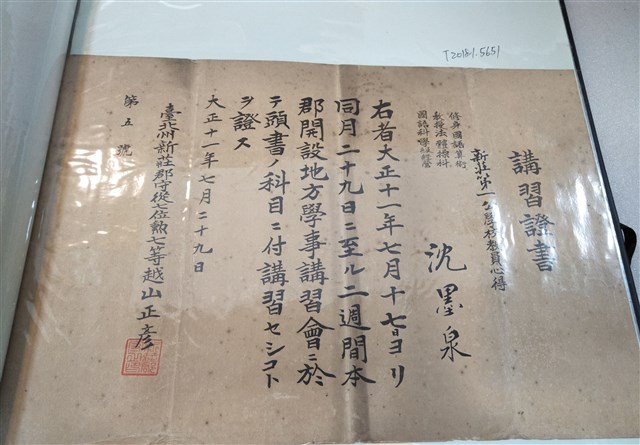 T2018.1.5651
講習證書
新莊第一公學校教員心得
沈墨泉
修身國語算術
教授法體操科
右者大正十一年七月十七日ヨリ
同月二十九日ニ至ル二週間本
郡開設地方學事講習會ニ於
テ頭書ノ科目ニ付講習セシコト
ヲ證ス
大正十一年七月二十九日
臺北州新莊郡守從七位勲七等越山正彥
第五號